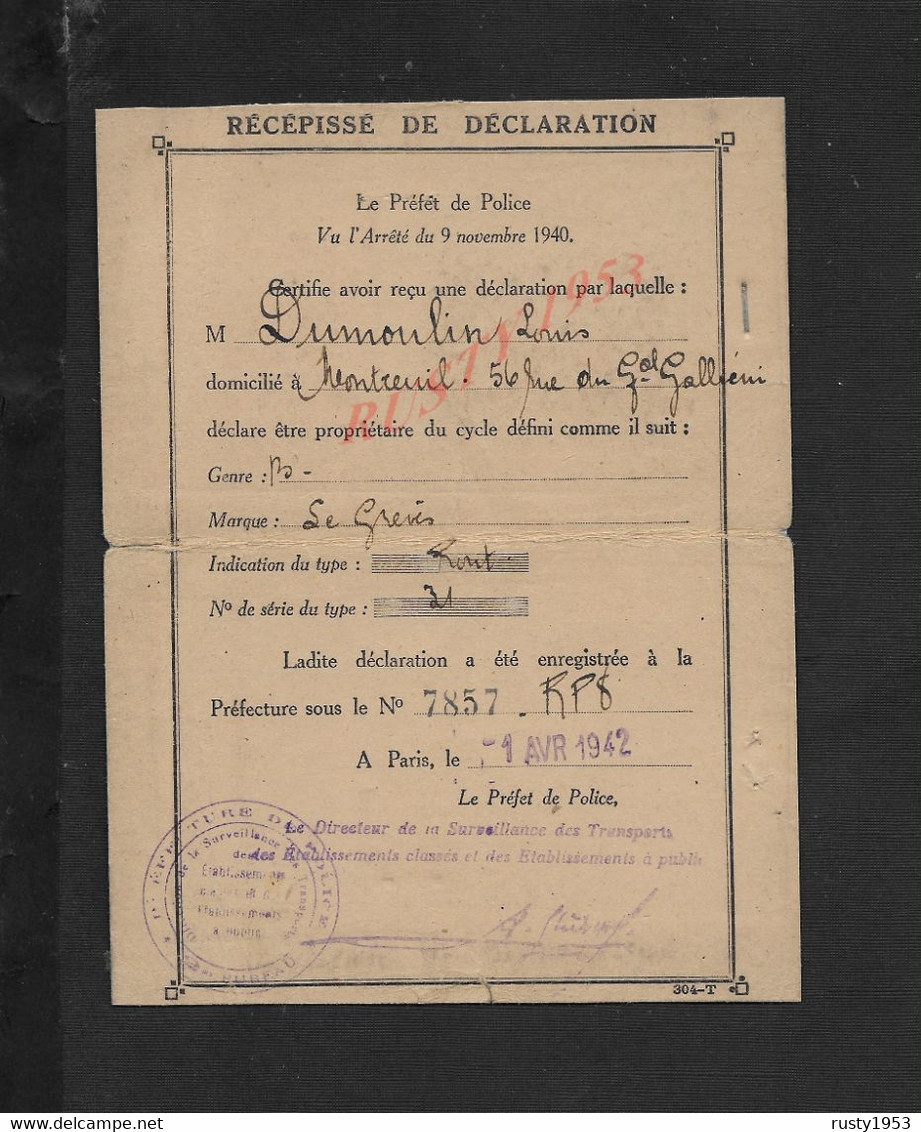 RÉCÉPISSÉ DE DÉCLARATION
Le Préfet de Police
Vu l'Arrêté du 9 novembre 1940.
Certifie avoir reçu une déclaration par laquelle :
M Dumoulin Louis
domicilié à Montreuil. 56 rue du Gal Gallieni
déclare être propriétaire du cycle défini comme il suit :
Genre : B -
Marque : Le Grevès
Indication du type : Rout
No de série du type : 31
Ladite déclaration a été enregistrée à la
Préfecture sous le No 7857. RP8
A Paris, le -1 AVR 1942
Le Préfet de Police,
Le Directeur de la Surveillance des Transports
des Etablissements classés et des Etablissements à public
PRÉFECTURE DE POLICE
de la Surveillance des Transports
des
Etablissements
Etablissements
à public
BUREAU
304-T
RUSTY 1953
rusty1953